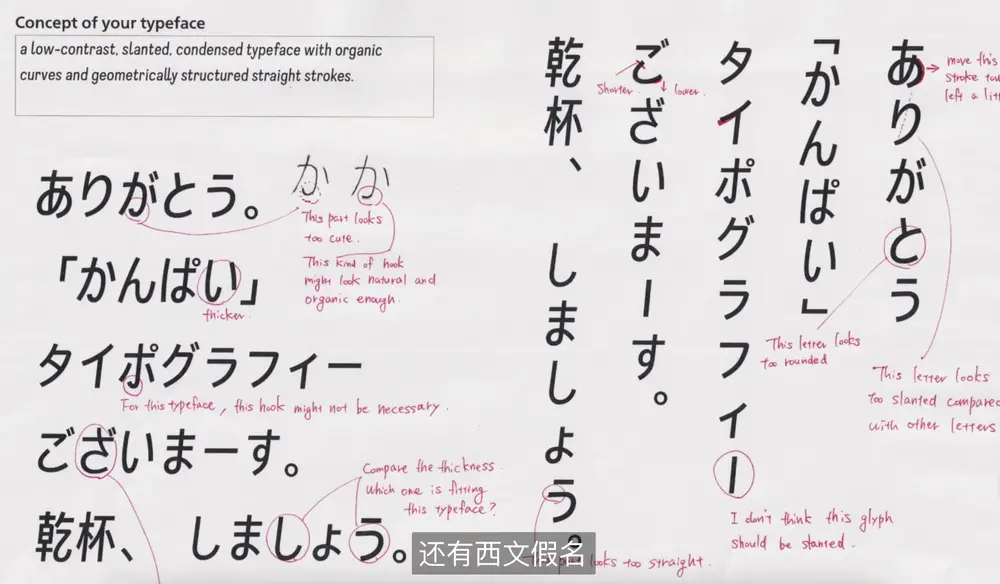 Concept of your typeface
a low-contrast, slanted, condensed typeface with organic
curves and geometrically structured straight strokes.
ありがとう。
か か
This part looks
too cute.
This kind of hook
might look natural and
organic enough.
「かんぱい」
thicker.
タイポグラフィー
For this typeface, this hook might not be necessary.
ございまーす。
乾杯、 しましょう。
Compare the thickness.
Which one is fitting
this typeface?
ありがとう
「かんぱい」
タイポグラフィー
ございまーす。
乾杯、 しましょう。
move this
stroke
left a
Shorter.
lower.
This letter looks
too rounded
This letter looks
too slanted compared
with other letters
I don't think this glyph
should be slanted.
looks too straight.
还有西文假名